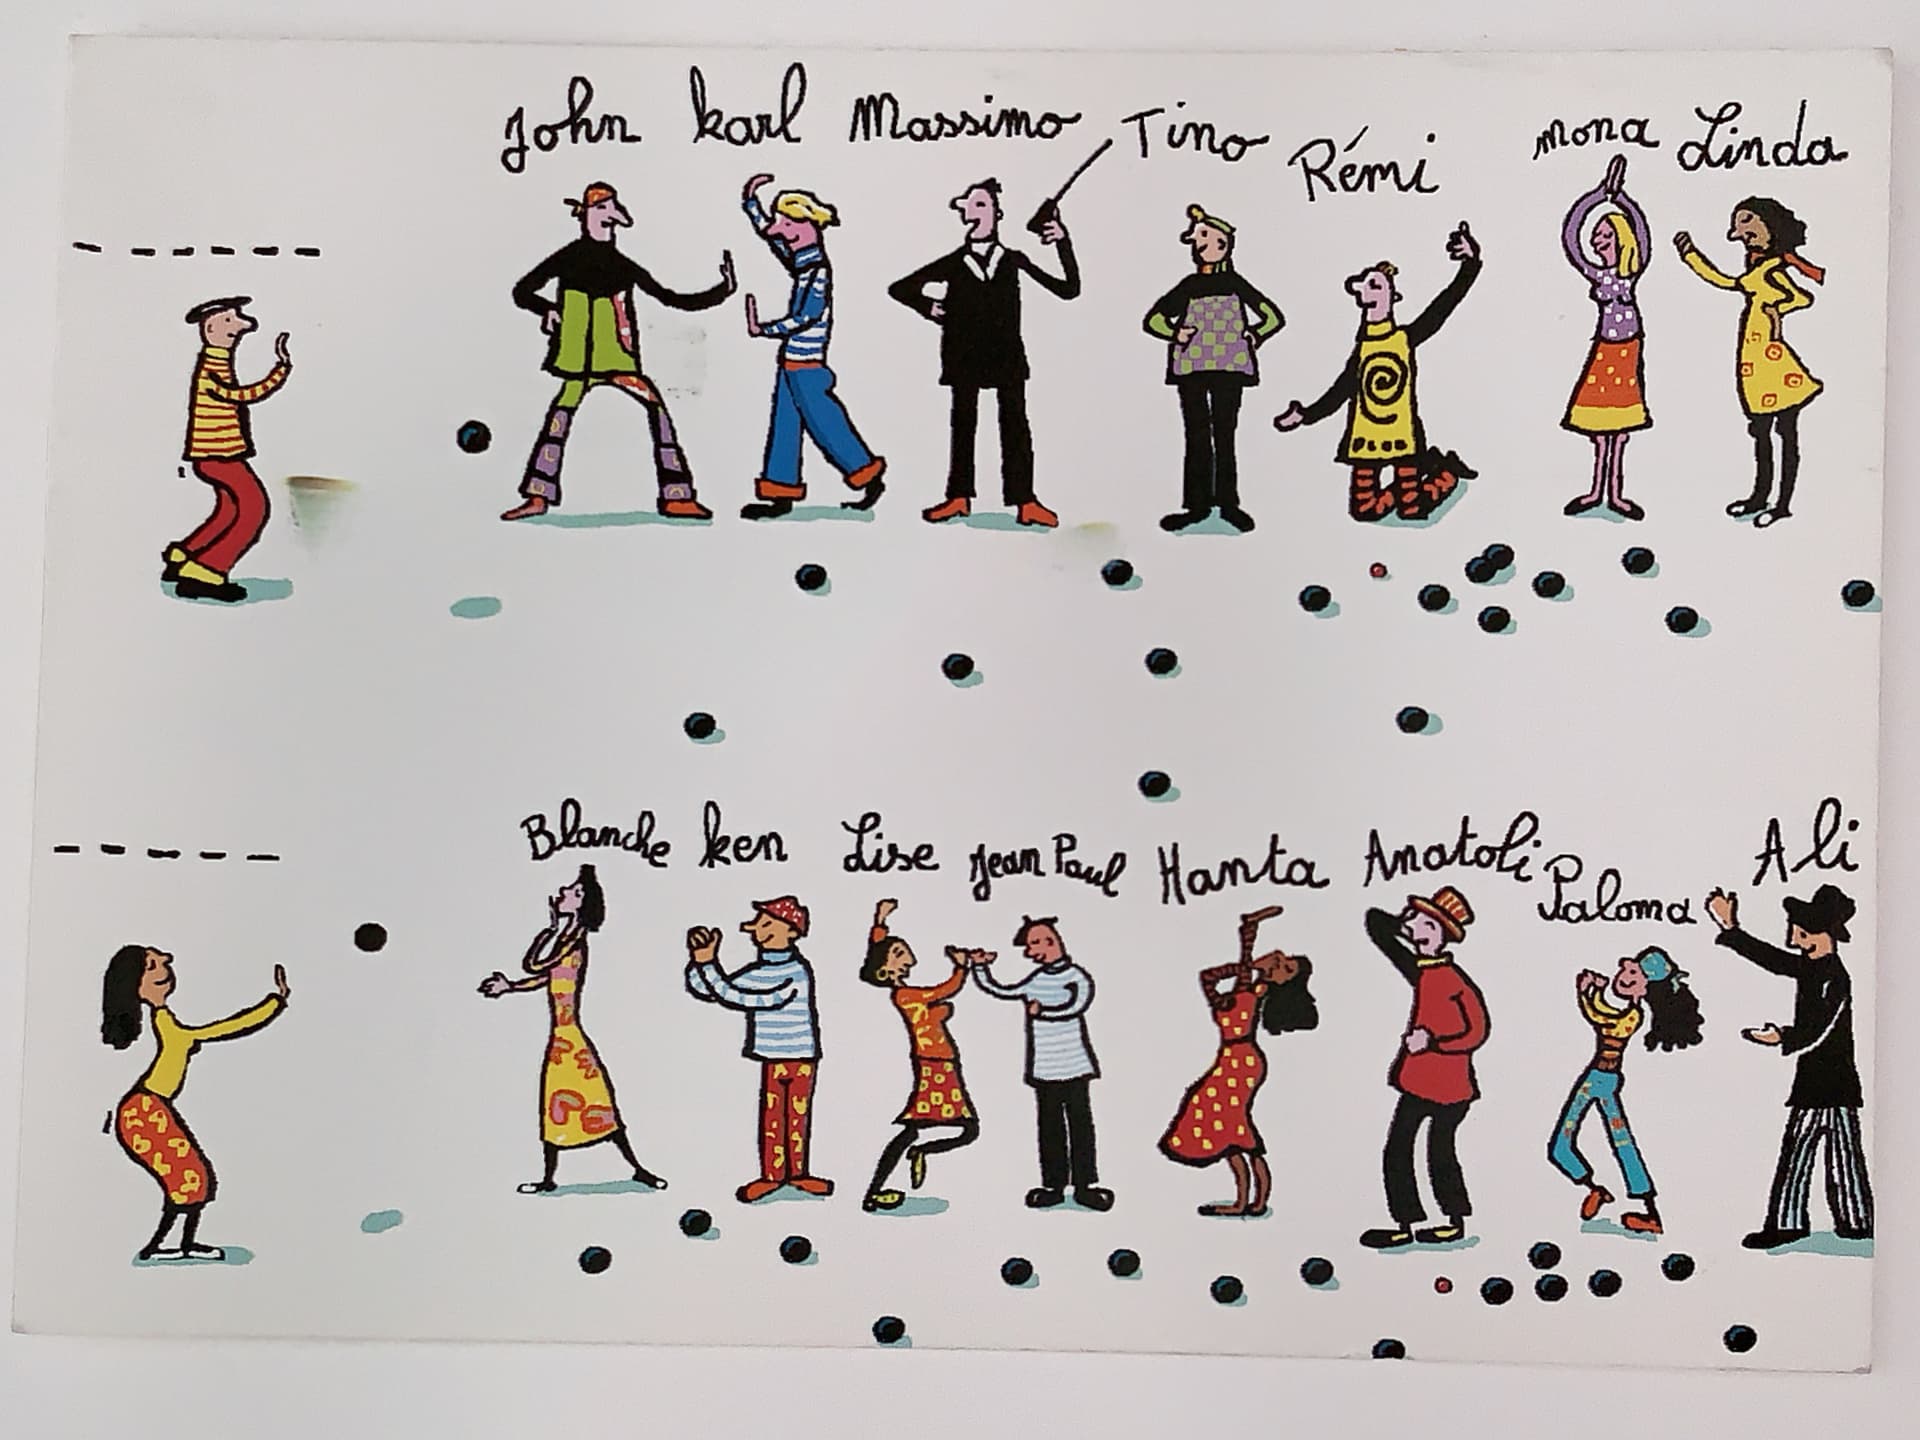 John karl Massimo Tino Rémi mona Linda
Blanche ken Lise Jean Paul Hanta Anatoli Paloma Ali